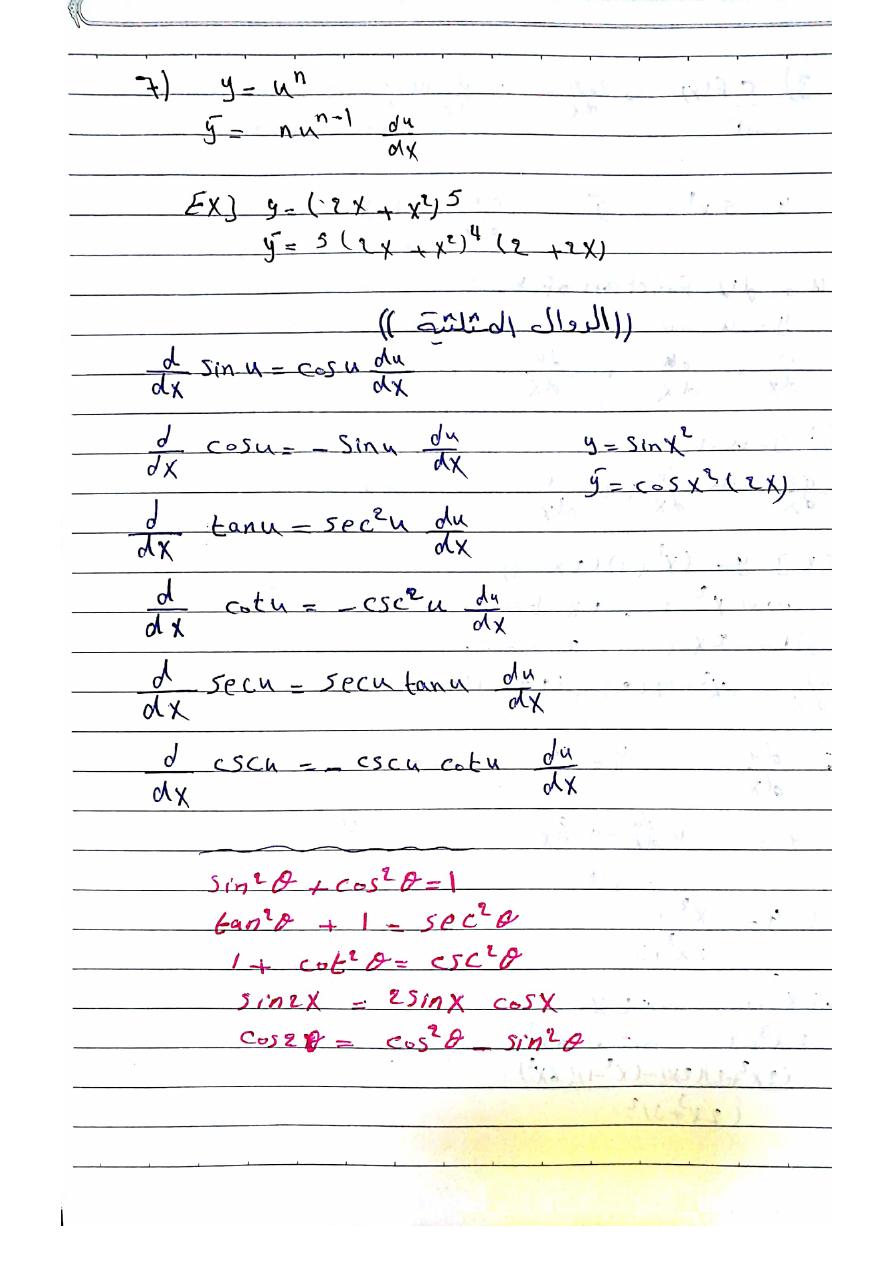 7) y = uⁿ
ȳ = nuⁿ⁻¹ du/dx
EX] y = (2x + x²)⁵
ȳ = 5(2x + x²)⁴ (2 + 2x)
((الدوال المثلثية))
d/dx sin u = cos u du/dx
d/dx cosu = - sinu du/dx
y = sinx²
ȳ = cosx²(2x)
d/dx tanu = sec²u du/dx
d/dx cotu = -csc²u du/dx
d/dx secu = secu tanu du/dx
d/dx cscu = - cscu cotu du/dx
sin²θ + cos²θ = 1
tan²θ + 1 = sec²θ
1 + cot²θ = csc²θ
sin2x = 2sinx cosx
cos2θ = cos²θ - sin²θ